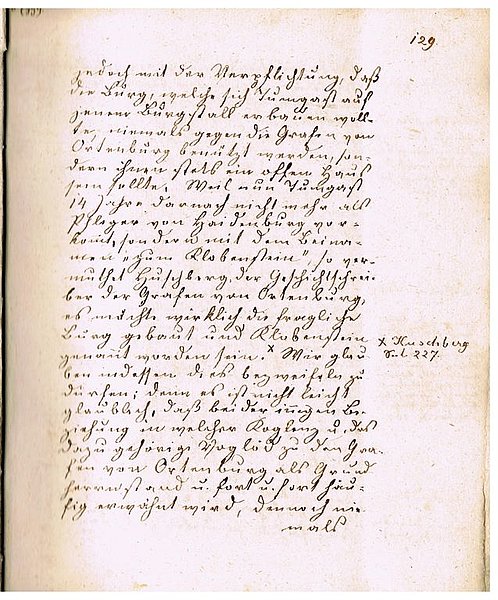 129.
jedoch mit der Verpflichtung, daß
die Burg, welche sich Tumgast auf
jenem Burgstall erbauen woll-
te, niemals gegen die Grafen von
Ortenburg benützt werden, son-
dern ihnen stets ein offen Haus
sein sollte. Weil nun Tumgast
14 Jahre darnach nicht mehr als
Pfleger von Haidenburg vor-
kömt, sondern mit dem Beina-
men „zum Klobenstein", so ver-
muthet Huschberg, der Geschichtschrei-
ber der Grafen von Ortenburg,
es möchte wirklich die fragliche
Burg gebaut und Klobenstein
genant worden sein.ˣ Wir glau-
x Huschberg
Seit. 227.
ben indessen dies bezweifeln zu
dürfen; denn es ist nicht leicht
glaublich, daß bei der innigen Be-
ziehung in welcher Koglenz u. das
dazu gehörige Voglöd zu den Gra-
fen von Ortenburg als Grund
herrn stand u. fort u. fort häu-
fig erwähnt wird, dennoch nie-
mals